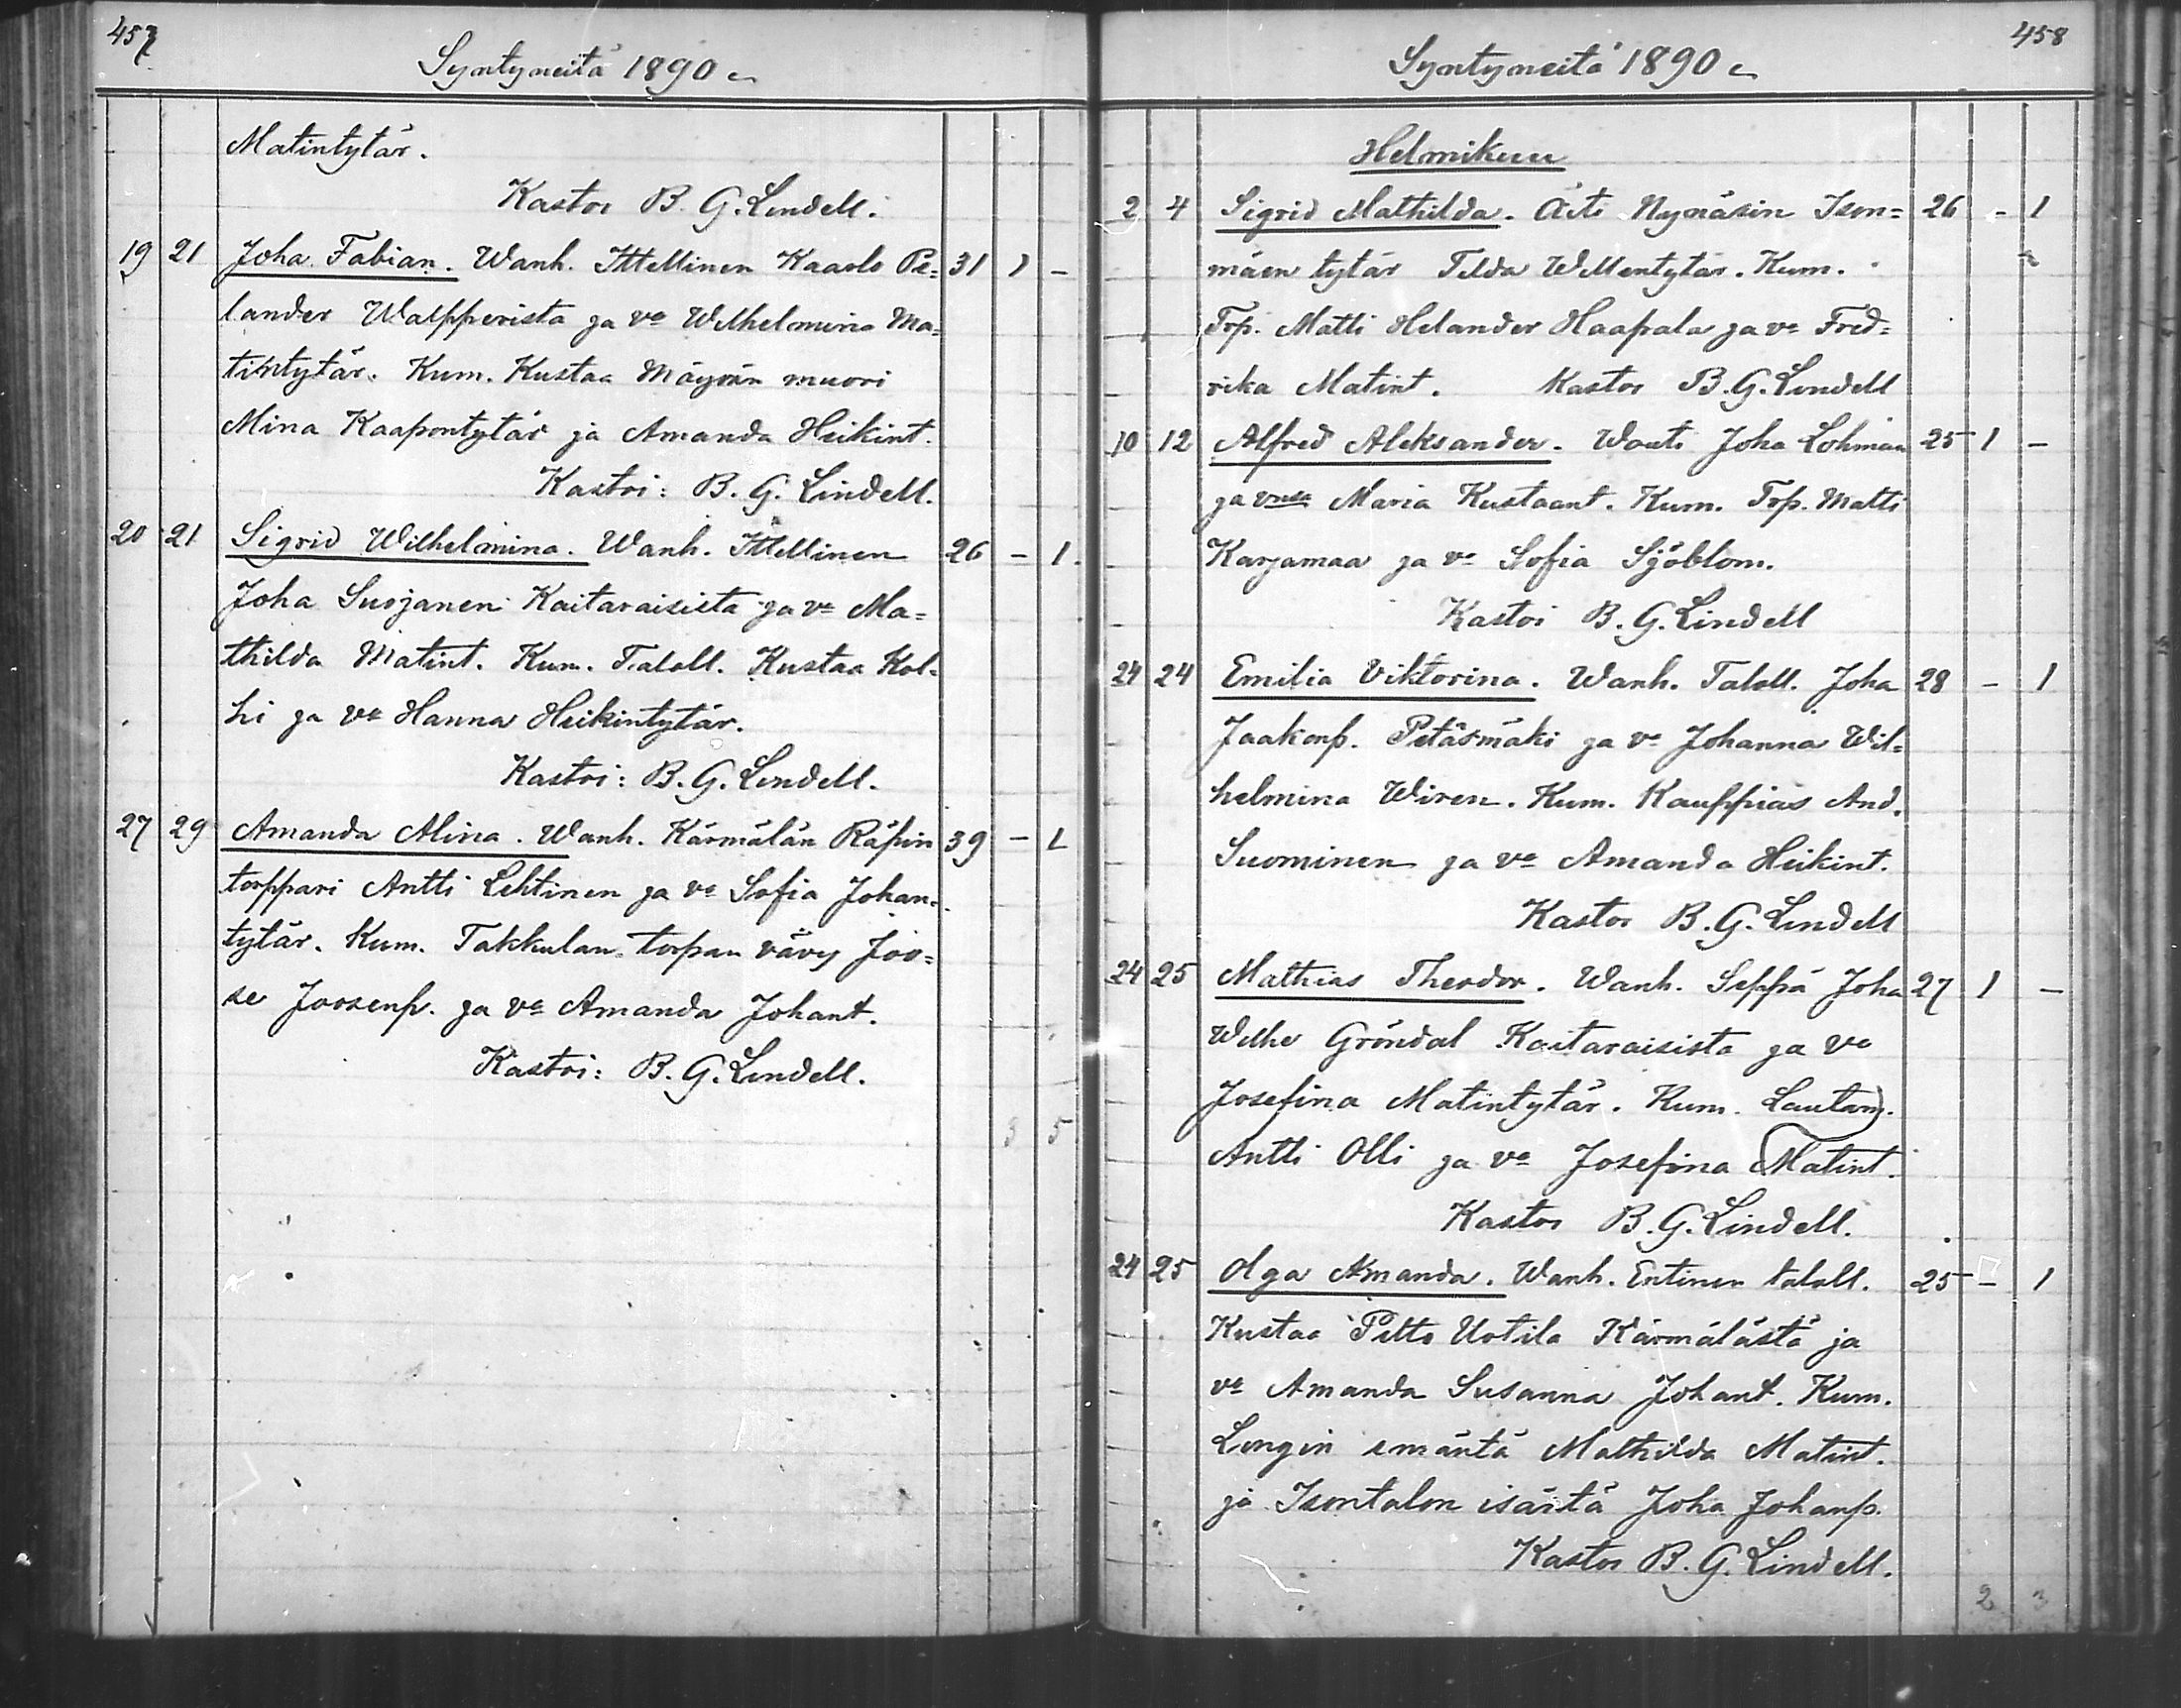 457
Syntyneitä 1890
Matintytär.
Kastoi B. G. Lindell.
19 21 Joha Fabian. Wanh. Ittellinen Kaarlo Pe= 31 1 -
lander Walpperista ja vo Wilhelmina Ma=
tintytär. Kum. Kustaa Mäyrän muori
Mina Kaapontytär ja Amanda Heikint.
Kastoi: B. G. Lindell.
20 21 Sigrid Wilhelmina. Wanh. Ittellinen 26 - 1.
Joha Suojanen Kaitaraisista ja vo Ma=
thilda Matint. Kum. Taloll. Kustaa Kol=
hi ja vo Hanna Heikintytär.
Kastoi: B. G. Lindell.
27 29 Amanda Alina. Wanh. Kärmälän Räpin 39 - 1
torppari Antti Lehtinen ja vo Sofia Johan=
tytär. Kum. Takkulan torpan vävy Joo=
se Joosenp. ja vo Amanda Johant.
Kastoi: B. G. Lindell.
3 5
458
Syntyneitä 1890
Helmikuu
2 4 Sigrid Mathilda. Äiti Nynäsin Ison= 26 - 1
mäen tytär Tilda Willentytär. Kum.
Trp. Matti Helander Haapala ja vo Fred=
rika Matint. Kastoi B. G. Lindell
10 12 Alfred Aleksander. Wouti Joha Lohman 25 1 -
ja vmsa Maria Kustaant. Kum. Trp. Matti
Karjamaa ja vo Sofia Sjöblom.
Kastoi B. G. Lindell
24 24 Emilia Viktorina. Wanh. Taloll. Joha 28 - 1
Jaakonp. Petäsmäki ja vo Johanna Wil=
helmina Wiren. Kum. Kauppias And.
Suominen ja vo Amanda Heikint.
Kastoi B. G. Lindell
24 25 Mathias Theodor. Wanh. Seppä Joha 27 1 -
Wilho Gröndal Kaitaraisista ja vo
Josefina Matintytär. Kum. Lautam.
Antti Olli ja vo Josefina Matint.
Kastoi B. G. Lindell.
24 25 Olga Amanda. Wanh. Entinen taloll. 25 - 1
Kustaa Pelto Uotila Kärmälästä ja
vo Amanda Susanna Johant. Kum.
Longin emäntä Mathilda Matint.
ja Isontalon isäntä Joha Johanp.
Kastoi B. G. Lindell.
2 3